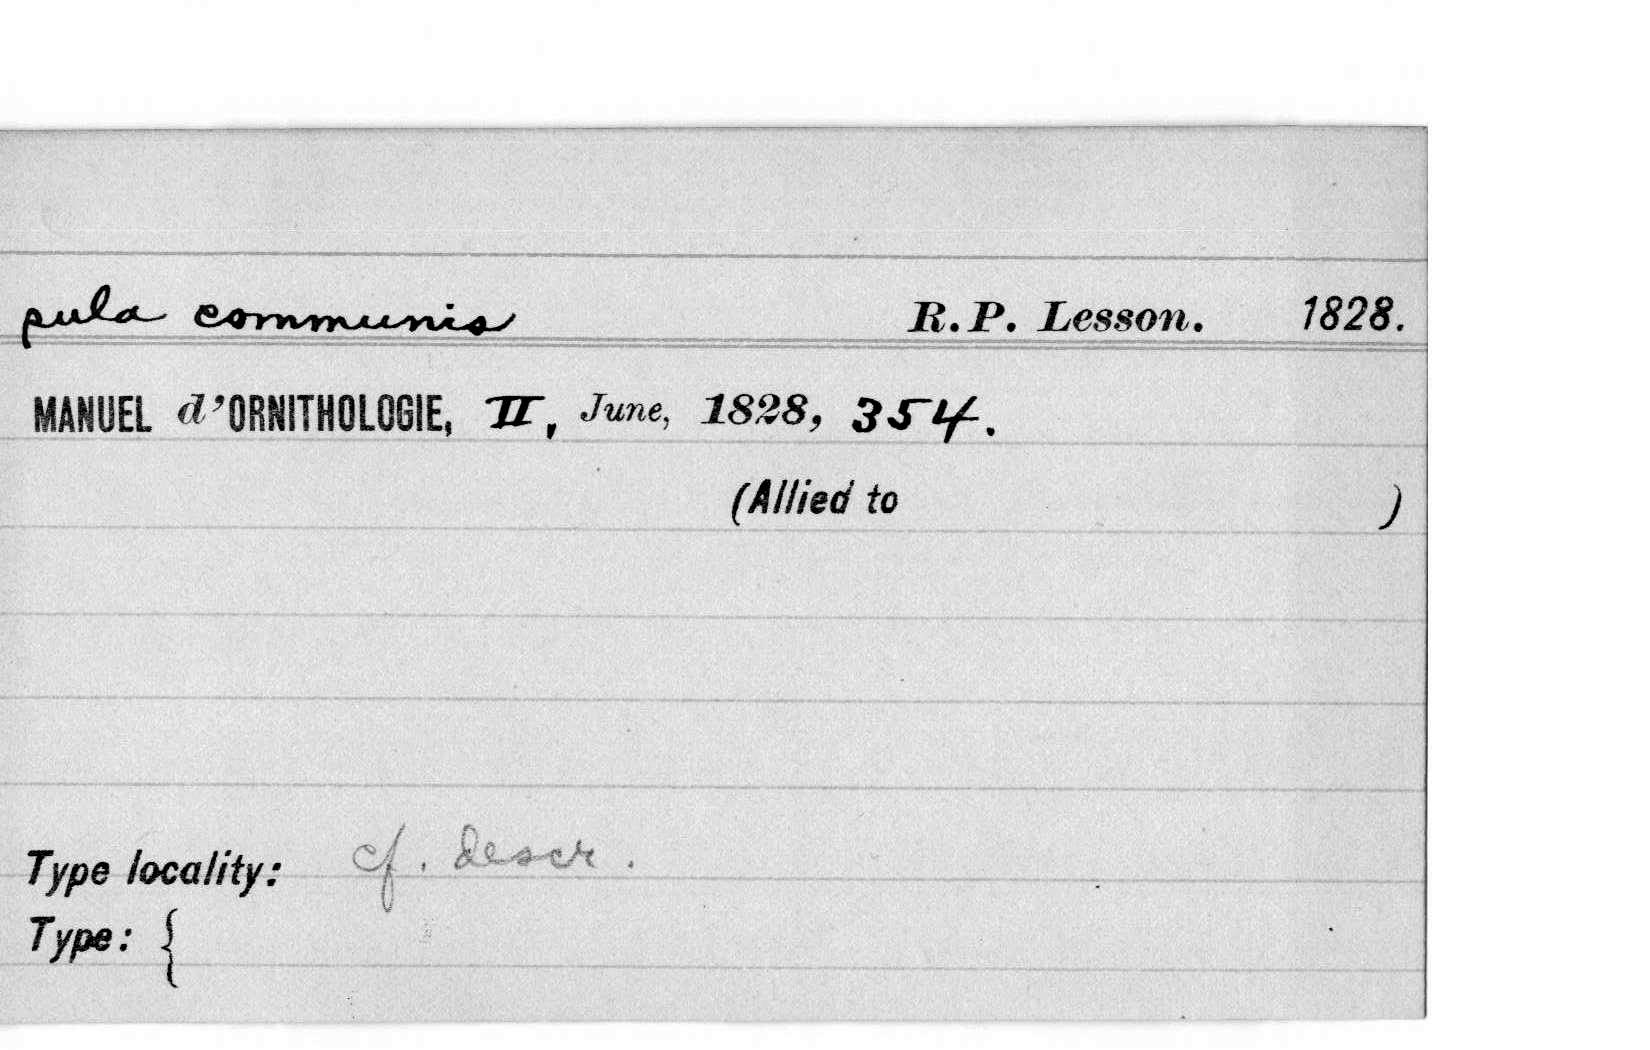 pula communis R.P. Lesson. 1828.
MANUEL d'ORNITHOLOGIE, II, June, 1828, 354.
(Allied to )
Type locality: cf. descr.
Type: {